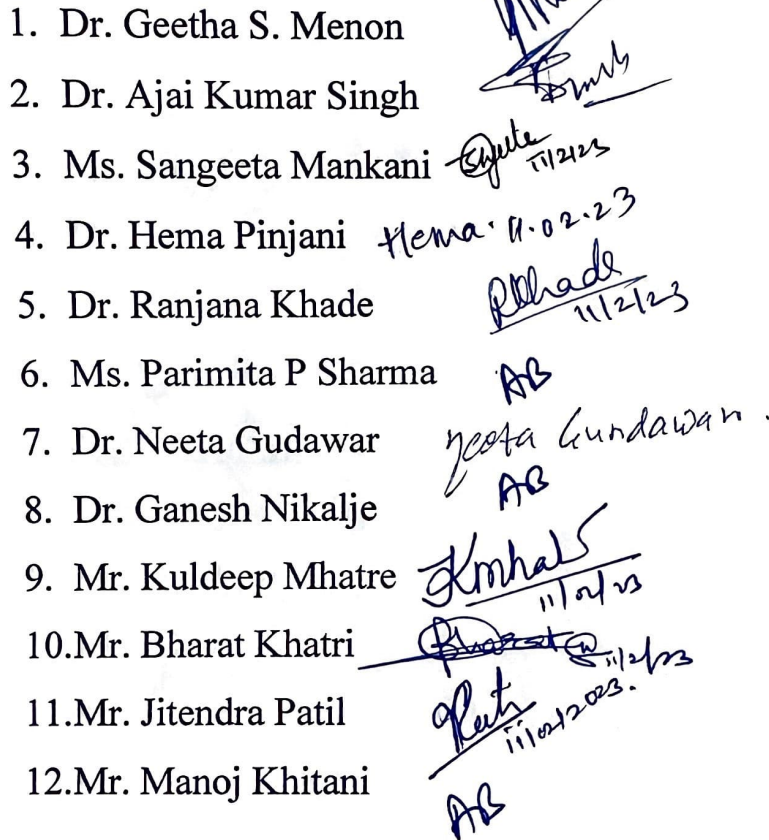 1. Dr. Geetha S. Menon
2. Dr. Ajai Kumar Singh
3. Ms. Sangeeta Mankani 11/2/23
4. Dr. Hema Pinjani Hema. 11.02.23
5. Dr. Ranjana Khade RKhade 11/2/23
6. Ms. Parimita P Sharma AB
7. Dr. Neeta Gudawar Neeta Gundawar.
8. Dr. Ganesh Nikalje AB
9. Mr. Kuldeep Mhatre 11/02/23
10.Mr. Bharat Khatri 11/2/23
11.Mr. Jitendra Patil 11/02/2023.
12.Mr. Manoj Khitani AB